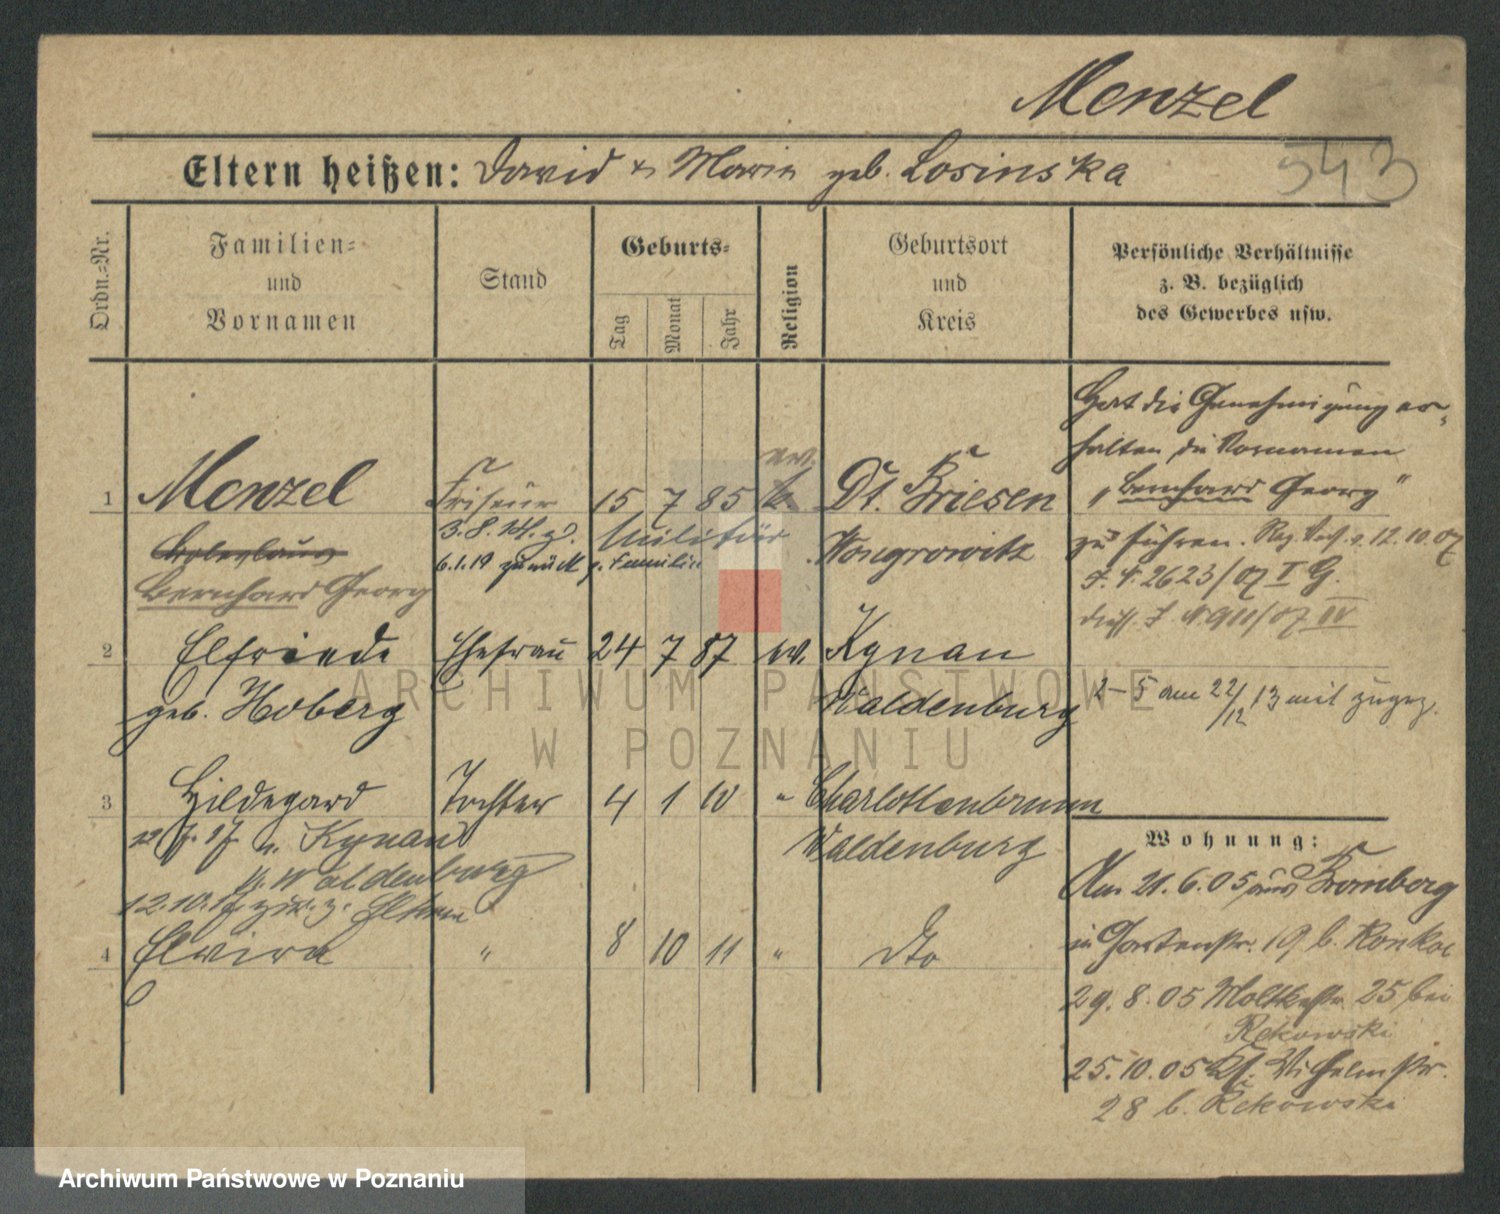 Menzel
Eltern heißen: David u. Marie geb. Losinska
543
Ordn.-Nr.
Familien-
und
Vornamen
Stand
Geburts-
Tag
Monat
Jahr
Religion
Geburtsort
und
Kreis
Persönliche Verhältnisse
z. B. bezüglich
des Gewerbes usw.
Hat die Genehmigung er-
halten die Vornamen
"Bernhard Georg"
zu führen. 12.10.07
J. N. 2623/07 I G.
ev.
1 Menzel Friseur 15 7 85 Dt. Briesen
Boleslaus 3.8. Militär Wongrowitz
6.1.19 zurück z. Familie
Bernhard Georg
2 Elfriede Ehefrau 24 7 87 ev. Kynau
geb. Hoberg Waldenburg
2-5 am 22/12 13 mit zugez.
3 Hildegard Tochter 4 1 10 " Charlottenbrunn
n. Kynau Waldenburg
Kr. Waldenburg
12.10.17 zur. z. Eltern
4 Elvira " 8 10 11 " dto
Wohnung:
Am 21.6.05 aus Bromberg
in Gartenstr. 19 b.
29.8.05 Moltkestr. 25 bei
Rekowski
25.10.05 Wilhelmstr.
28 b. Rekowski
ARCHIWUM PAŃSTWOWE
W POZNANIU
Archiwum Państwowe w Poznaniu